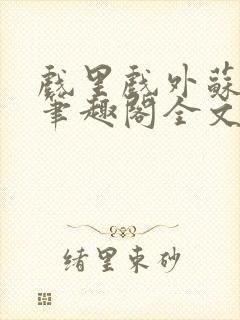 戲里戲外蘇
筆趣閣全文
緒里束砂